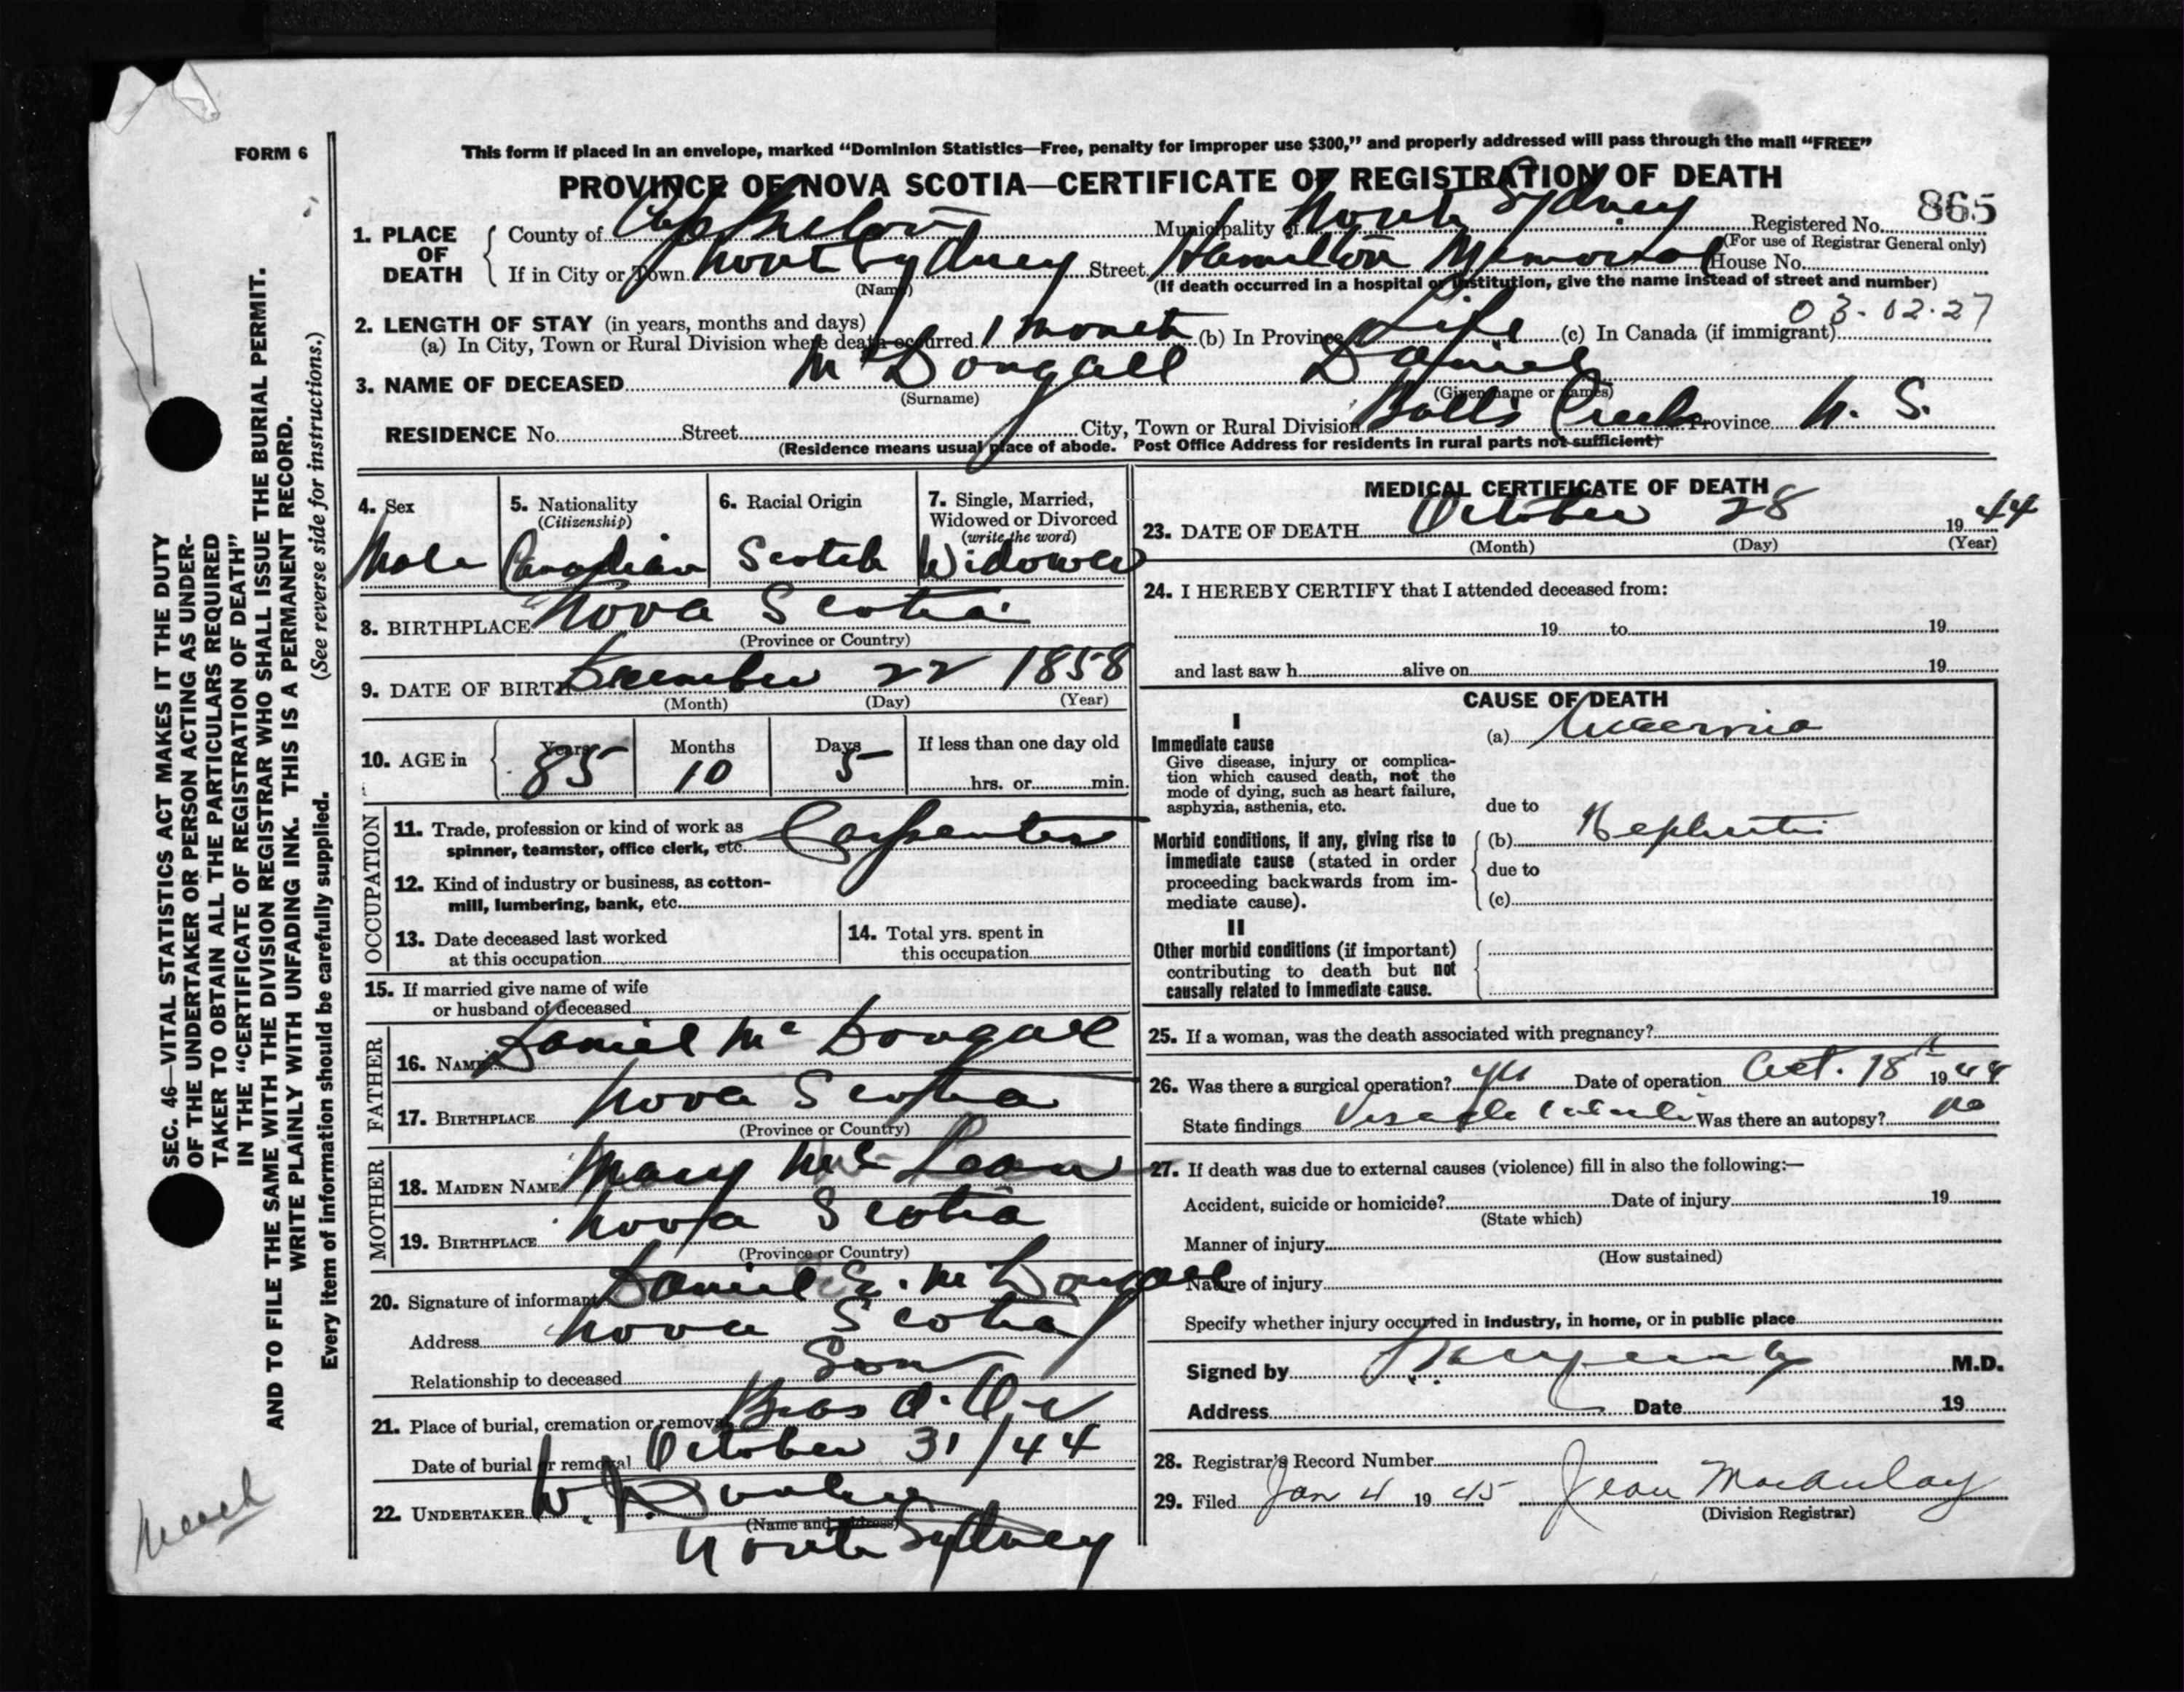 FORM 6
This form if placed in an envelope, marked “Dominion Statistics—Free, penalty for improper use $300,” and properly addressed will pass through the mail “FREE”
PROVINCE OF NOVA SCOTIA—CERTIFICATE OF REGISTRATION OF DEATH
865
1. PLACE OF DEATH
County of Cape Breton Municipality of North Sydney Registered No.
(For use of Registrar General only)
If in City or Town North Sydney Street Hamilton Memorial House No.
(Name) (If death occurred in a hospital or institution, give the name instead of street and number)
03-02-27
2. LENGTH OF STAY (in years, months and days)
(a) In City, Town or Rural Division where death occurred 1 month (b) In Province Life (c) In Canada (if immigrant)
3. NAME OF DECEASED McDougall Daniel
(Surname) (Given name or names)
RESIDENCE No. Street City, Town or Rural Division Balls Creek Province N. S.
(Residence means usual place of abode. Post Office Address for residents in rural parts not sufficient)
4. Sex
Male
5. Nationality
(Citizenship)
Canadian
6. Racial Origin
Scotch
7. Single, Married,
Widowed or Divorced
(write the word)
Widower
8. BIRTHPLACE Nova Scotia
(Province or Country)
9. DATE OF BIRTH December 22 1858
(Month) (Day) (Year)
10. AGE in Years Months Days If less than one day old
85 10 5 hrs. or min.
OCCUPATION
11. Trade, profession or kind of work as
spinner, teamster, office clerk, etc. Carpenter
12. Kind of industry or business, as cotton-
mill, lumbering, bank, etc.
13. Date deceased last worked
at this occupation
14. Total yrs. spent in
this occupation
15. If married give name of wife
or husband of deceased
FATHER
16. NAME Daniel McDougall
17. BIRTHPLACE Nova Scotia
(Province or Country)
MOTHER
18. MAIDEN NAME Mary McLean
19. BIRTHPLACE Nova Scotia
(Province or Country)
20. Signature of informant Daniel McDougall
Address Nova Scotia
Relationship to deceased Son
21. Place of burial, cremation or removal Bras d'Or
Date of burial or removal October 31/44
22. UNDERTAKER W. J.
(Name and address)
North Sydney
MEDICAL CERTIFICATE OF DEATH
23. DATE OF DEATH October 28 1944
(Month) (Day) (Year)
24. I HEREBY CERTIFY that I attended deceased from:
19 to 19
and last saw h alive on 19
CAUSE OF DEATH
I
Immediate cause
Give disease, injury or complica-
tion which caused death, not the
mode of dying, such as heart failure,
asphyxia, asthenia, etc.
(a) Uraemia
due to
Morbid conditions, if any, giving rise to
immediate cause (stated in order
proceeding backwards from im-
mediate cause).
(b) Nephritis
due to
(c)
II
Other morbid conditions (if important)
contributing to death but not
causally related to immediate cause.
25. If a woman, was the death associated with pregnancy?
26. Was there a surgical operation? yes Date of operation Oct. 18th 1944
State findings Was there an autopsy? no
27. If death was due to external causes (violence) fill in also the following:—
Accident, suicide or homicide? Date of injury 19
(State which)
Manner of injury
(How sustained)
Nature of injury
Specify whether injury occurred in industry, in home, or in public place
Signed by M.D.
Address Date 19
28. Registrar's Record Number
29. Filed Jan 4 1945 Jean MacAulay
(Division Registrar)
SEC. 46—VITAL STATISTICS ACT MAKES IT THE DUTY
OF THE UNDERTAKER OR PERSON ACTING AS UNDER-
TAKER TO OBTAIN ALL THE PARTICULARS REQUIRED
IN THE “CERTIFICATE OF REGISTRATION OF DEATH”
AND TO FILE THE SAME WITH THE DIVISION REGISTRAR WHO SHALL ISSUE THE BURIAL PERMIT.
WRITE PLAINLY WITH UNFADING INK. THIS IS A PERMANENT RECORD.
Every item of information should be carefully supplied. (See reverse side for instructions.)